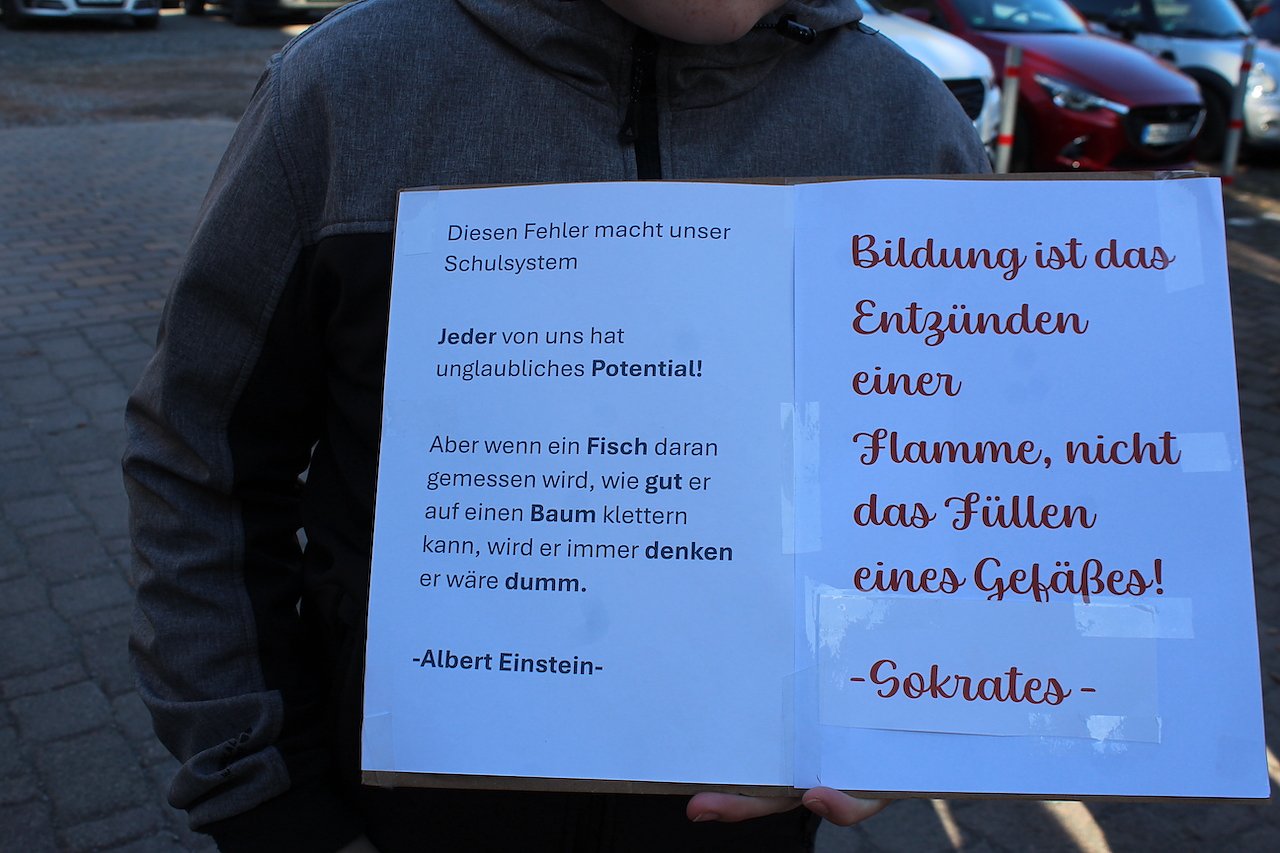 Diesen Fehler macht unser
Schulsystem
Jeder von uns hat
unglaubliches Potential!
Aber wenn ein Fisch daran
gemessen wird, wie gut er
auf einen Baum klettern
kann, wird er immer denken
er wäre dumm.
-Albert Einstein-
Bildung ist das
Entzünden
einer
Flamme, nicht
das Füllen
eines Gefäßes!
-Sokrates -